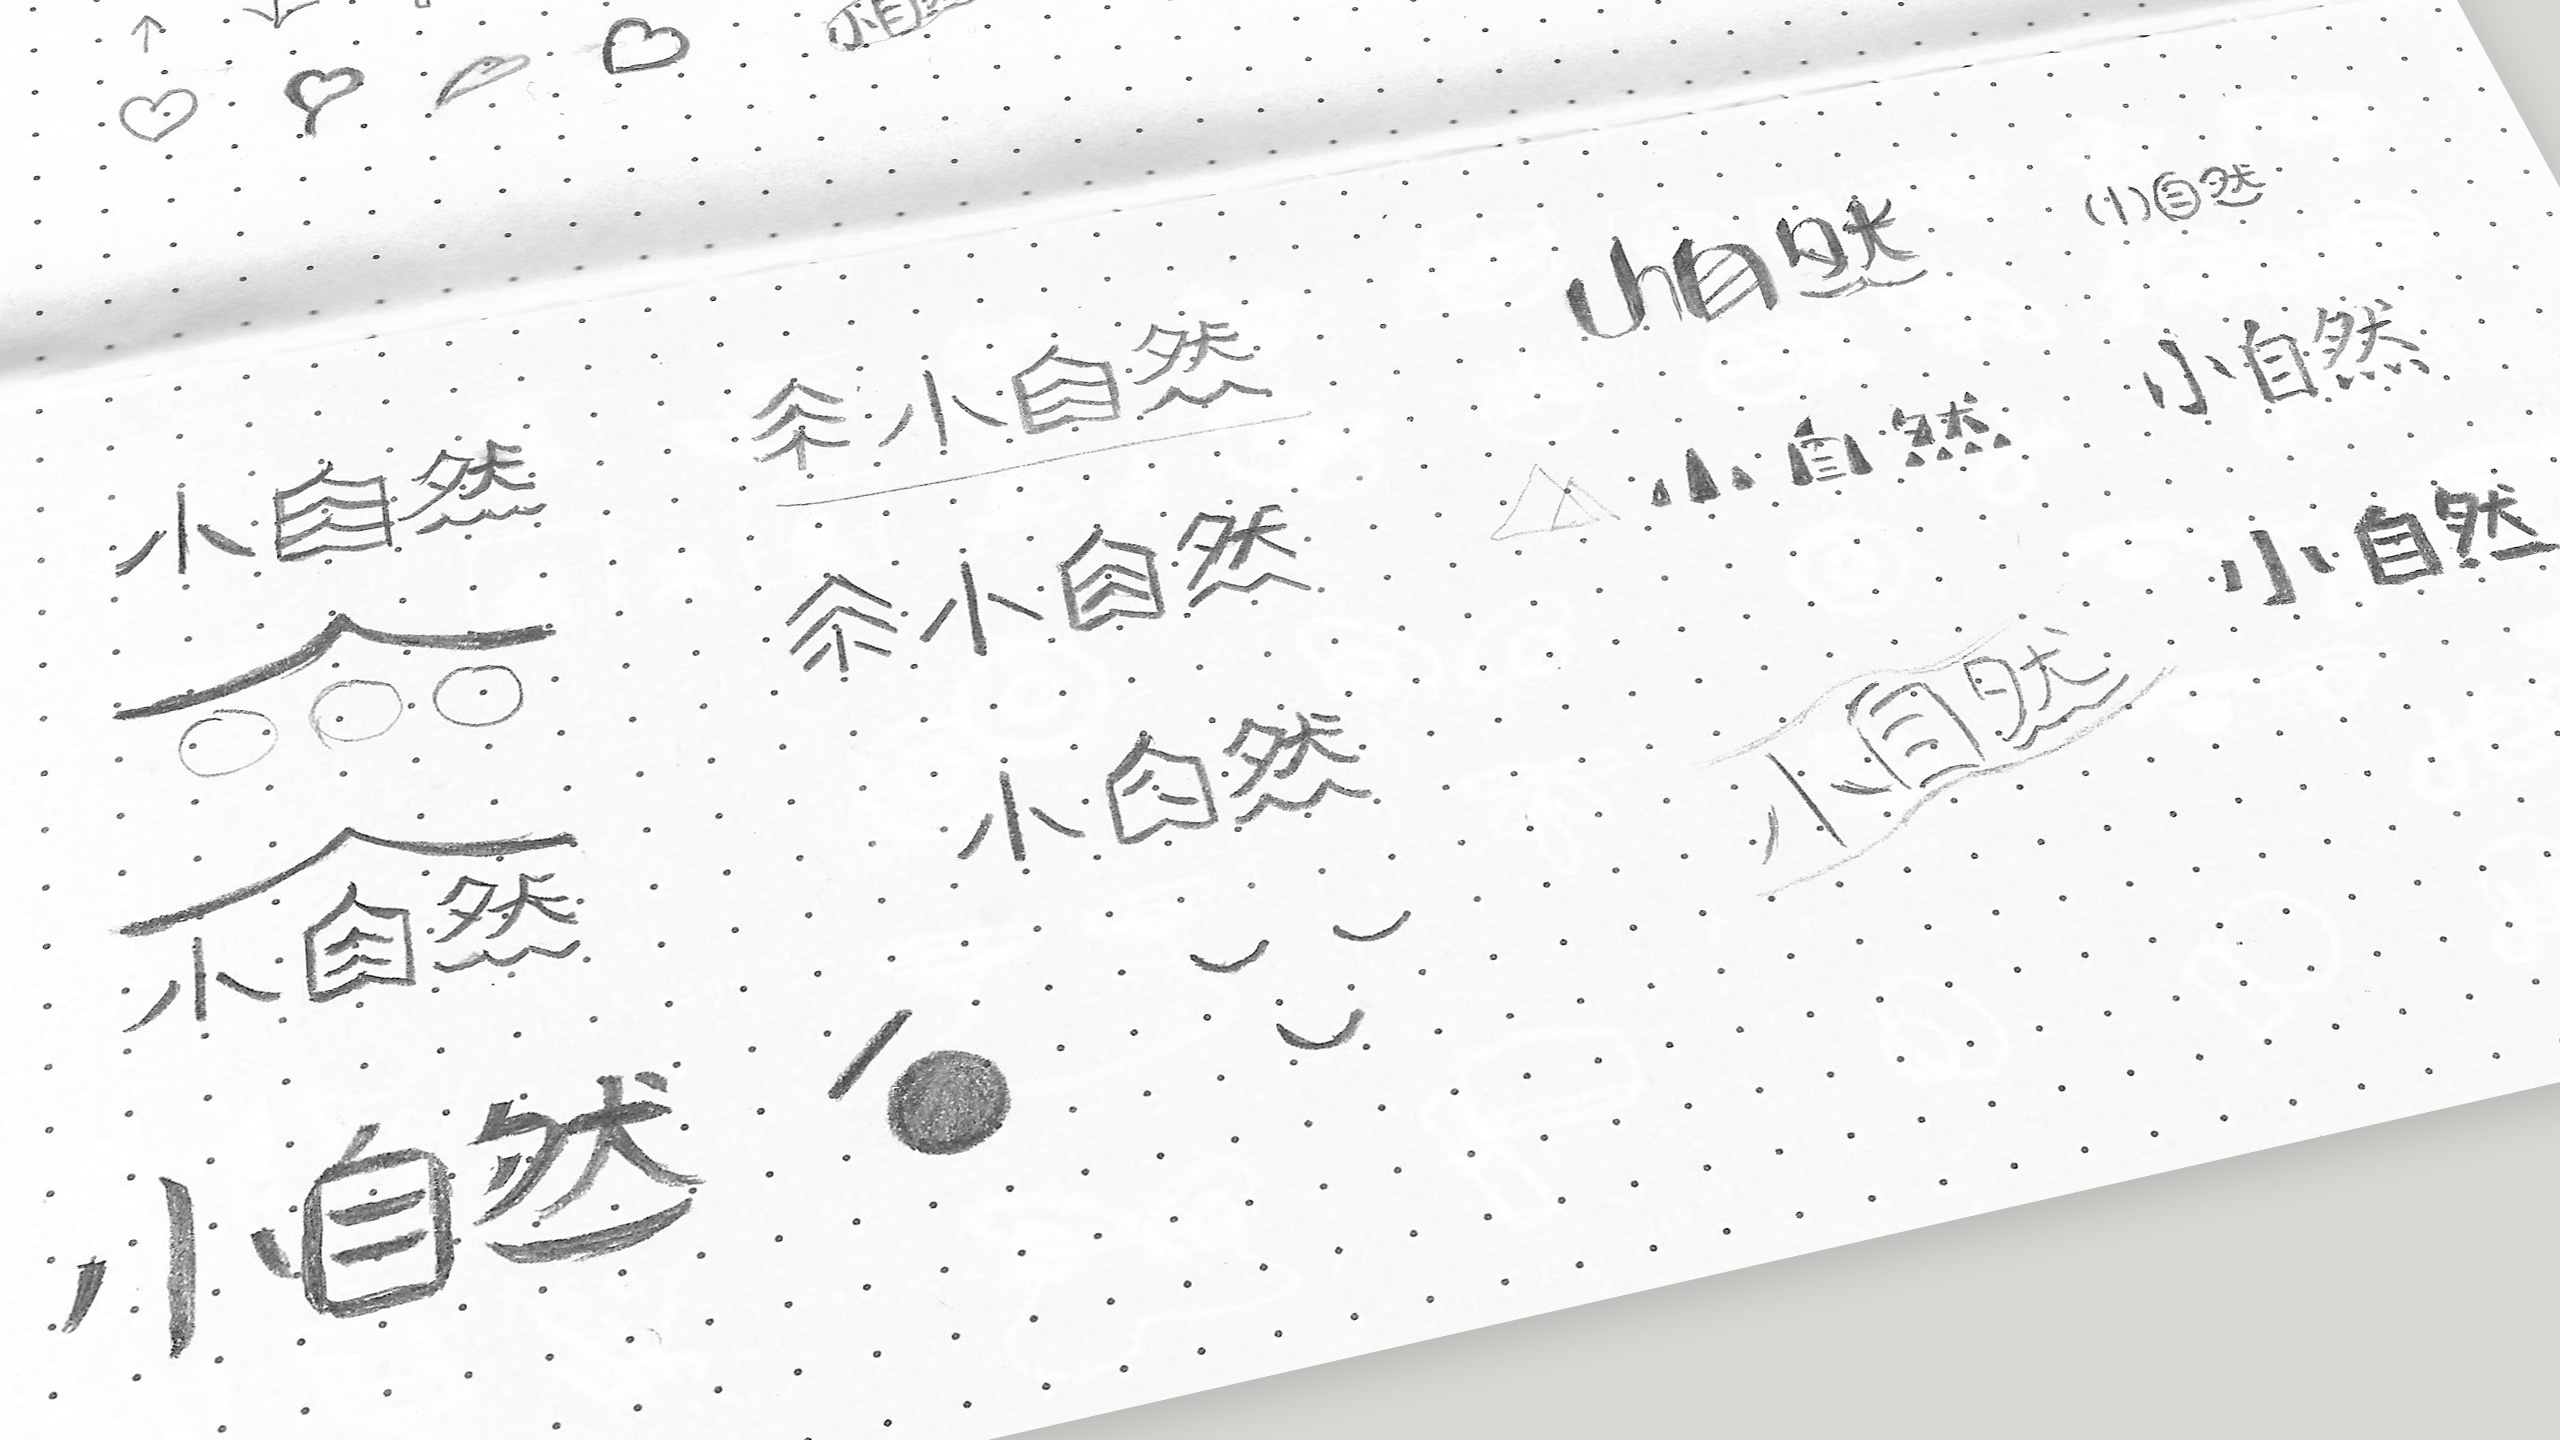 小自
小自然
小自然
小自然
小自然
小自然
小自然
小自然
小自然
小自然
小自然
小自然
小自然